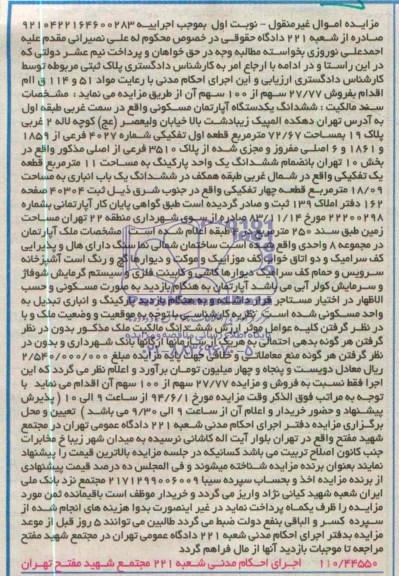 مزایده اموال غیرمنقول - نوبت اول بموجب اجراییه ۹۲۱۰۴۲۲۱۶۴۶۰۰۲۸۳
صادره از شعبه ۲۲۱ دادگاه حقوقی در خصوص محکوم له علی نصیرائی مقدم علیه
احمدعلی نوروزی بخواسته مطالبه وجه در حق خواهان و پرداخت نیم عشر دولتی که
در این راستا و در ادامه با ارجاع امر به کارشناس دادگستری پلاک ثبتی مربوطه توسط
کارشناس دادگستری ارزیابی و این اجرای احکام مدنی با رعایت مواد ۵۱ و ۱۱۴ ق اام
اقدام بفروش ۲۷/۷۷ سهم از ۱۰۰ سهم آن از طریق مزایده می نماید : مشخصات
سند مالکیت : ششدانگ یکدستگاه آپارتمان مسکونی واقع در سمت غربی طبقه اول
به آدرس تهران دهکده المپیک زیبادشت بالا خیابان ولیعصر (عج) کوچه لاله ۲ غربی
پلاک ۱۹ بمساحت ۷۲/۶۷ مترمربع قطعه اول تفکیکی شماره ۴۰۲۷ فرعی از ۱۸۵۹
و ۱۸۶۱ و ۶ اصلی مفروز و مجزی شده از پلاک ۳۵۱۰ فرعی از اصلی مذکور واقع در
بخش ۱۰ تهران بانضمام ششدانگ یک واحد پارکینگ به مساحت ۱۱ مترمربع قطعه
یک تفکیکی واقع در شمال غربی طبقه همکف در ششدانگ یک باب انباری به مساحت
۱۸/۰۹ مترمربع قطعه چهار تفکیکی واقع در جنوب شرق ذیل ثبت ۴۰۳۰۴ صفحه
۱۶۲ دفتر املاک ۱۳۹ ثبت و صادر گردیده است طبق گواهی پایان کار آپارتمانی بشماره
۲۲۲۰۰۲۹۸ مورخ ۸۳/۱۱/۱۴ صادره از سوی شهرداری منطقه ۲۲ تهران مساحت
زمین طبق سند ۲۵۰ مترمربع در ۴ طبقه اعلام شده است مشخصات ملک آپارتمان
در مجموعه ۸ واحدی واقع شده است ساختمان شمالی نما سنگ دارای هال و پذیرایی
کف سرامیک و دو اتاق خواب کف موزاییک و موکت و دیوارها گچ و رنگ است آشپزخانه
سرویس و حمام کف سرامیک دیوارها کاشی و کابینت فلزی و سیستم گرمایش شوفاژ
و سرمایش کولر آبی می باشد آپارتمان به هنگام بازدید به صورت مسکونی و حسب
الاظهار در اختیار مستاجر قرار داشته و به هنگام بازدید پارکینگ و انباری تبدیل به
واحد مسکونی شده است . نظریه کارشناسی باتوجه به موقعیت و وضعیت ملک و با
در نظر گرفتن کلیه عوامل موثر ارزش ششدانگ مالکیت ملک مذکور بدون در نظر
گرفتن هر گونه بدهی احتمالی به هریک از سازمانها ارگانها بانک شهرداری و بدون در
نظر گرفتن هر گونه منع معاملاتی و خلافی جهت مزایده مبلغ ۲/۵۲۰/۰۰۰/۰۰۰
ریال معادل دویست و پنجاه و چهار میلیون تومان برآورد و اعلام نظر می گردد که این
اجرا فقط نسبت به فروش و مزایده ۲۷/۷۷ سهم از ۱۰۰ سهم آن اقدام می نماید با
توجه به مراتب فوق الذکر وقت مزایده مورخ ۹۴/۶/۱ از ساعت ۹ الی ۱۰ ( پذیرش
پیشنهاد و حضور خریدار و اعلام آن از ساعت ۹ الی ۹/۳۰ می باشد ) تعیین و محل
برگزاری مزایده دفتر اجرای احکام مدنی شعبه ۲۲۱ دادگاه عمومی تهران در مجتمع
شهید مفتح واقع در تهران بلوار آیت اله کاشانی نرسیده به میدان شهر زیبا خ مخابرات
جنب کانون اصلاح تربیت می باشد کسانیکه در جلسه مزایده بالاترین قیمت را پیشنهاد
نمایند بعنوان برنده مزایده شناخته میشوند و فی المجلس ده درصد قیمت پیشنهادی
از برنده مزایده اخذ و بحساب سپرده سیبا ۲۱۷۱۲۹۹۰۰۶۰۰۹ مجتمع نزد بانک ملی
ایران شعبه شهید کیانی نژاد واریز می گردد و خریدار موظف است باقیمانده ثمن مورد
مزایده را ظرف یکماه پرداخت نماید در غیر اینصورت بدوا هزینه های انجام شده از
سپرده کسر و الباقی بنفع دولت ضبط می گردد طالبین می توانند ۵ روز قبل از موعد
مزایده بدفتر اجرای احکام مدنی شعبه ۲۲۱ دادگاه عمومی تهران در مجتمع شهید مفتح
مراجعه تا موجبات بازدید آنها از مال فراهم گردد
۱۱۰/۴۴۵۵۰ اجرای احکام مدنی شعبه ۲۲۱ مجتمع شهید مفتح تهران